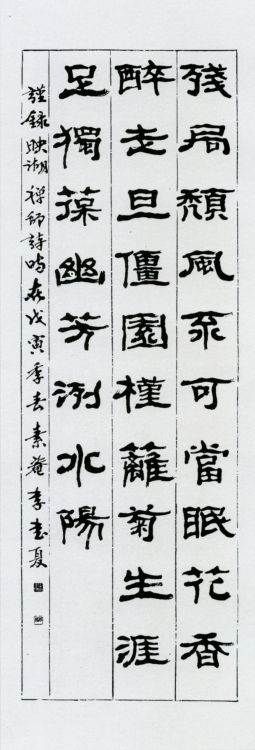 殘局頹風不可當眠花香
醉走且僵園槿籬菊生涯
足獨葆幽芳洌水陽
謹錄映湖禪師詩時在戊寅季春素菴李夏